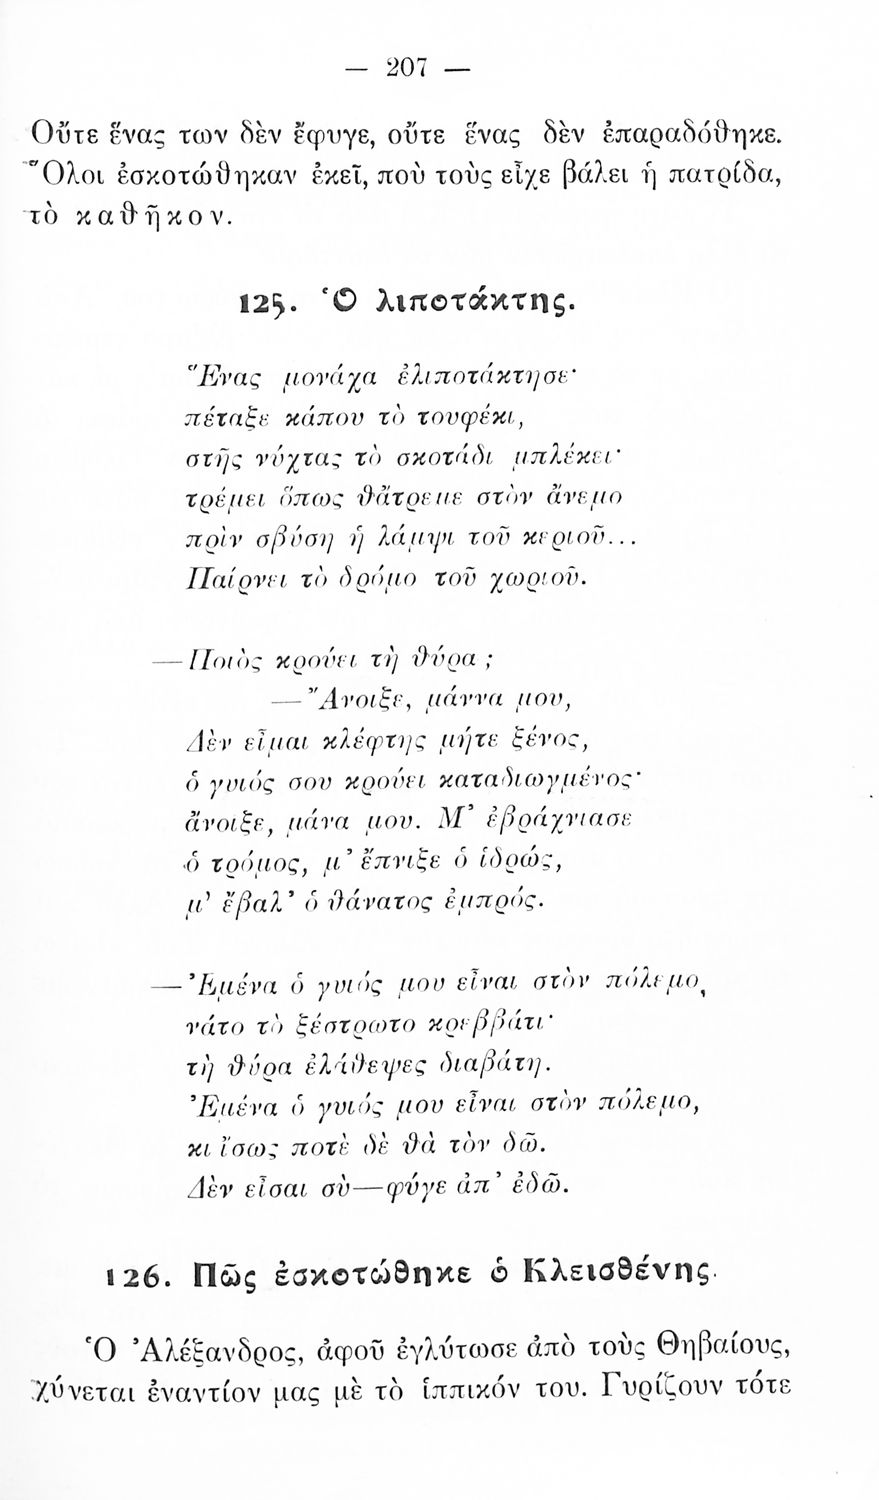 — 207 —
Οὔτε ἕνας των δὲν ἔφυγε, οὔτε ἕνας δὲν ἐπαραδόθηκε.
Ὅλοι ἐσκοτώθηκαν ἐκεῖ, ποὺ τοὺς εἶχε βάλει ἡ πατρίδα,
τὸ καθῆκον.
125. Ὁ λιποτάκτης.
Ἕνας μονάχα ἐλιποτάκτησε·
πέταξε κάπου τὸ τουφέκι,
στῆς νύχτας τὸ σκοτάδι μπλέκει·
τρέμει ὅπως θἄτρεμε στὸν ἄνεμο
πρὶν σβύσῃ ἡ λάμψι τοῦ κεριοῦ...
Παίρνει τὸ δρόμο τοῦ χωριοῦ.
— Ποιὸς κρούει τὴ θύρα ;
— Ἄνοιξε, μάννα μου,
Δὲν εἶμαι κλέφτης μήτε ξένος,
ὁ γυιός σου κρούει καταδιωγμένος·
ἄνοιξε, μάνα μου. Μ' ἐβράχνιασε
ὁ τρόμος, μ' ἔπνιξε ὁ ἱδρώς,
μ' ἔβαλ' ὁ θάνατος ἐμπρός.
— Ἐμένα ὁ γυιός μου εἶναι στὸν πόλεμο,
νάτο τὸ ξέστρωτο κρεββάτι·
τὴ θύρα ἐλάθεψες διαβάτη.
Ἐμένα ὁ γυιός μου εἶναι στὸν πόλεμο,
κι ἴσως ποτὲ δὲ θὰ τὸν δῶ.
Δὲν εἶσαι σὺ—φύγε ἀπ' ἐδῶ.
126. Πῶς ἐσκοτώθηκε ὁ Κλεισθένης.
Ὁ Ἀλέξανδρος, ἀφοῦ ἐγλύτωσε ἀπὸ τοὺς Θηβαίους,
χύνεται ἐναντίον μας μὲ τὸ ἱππικόν του. Γυρίζουν τότε